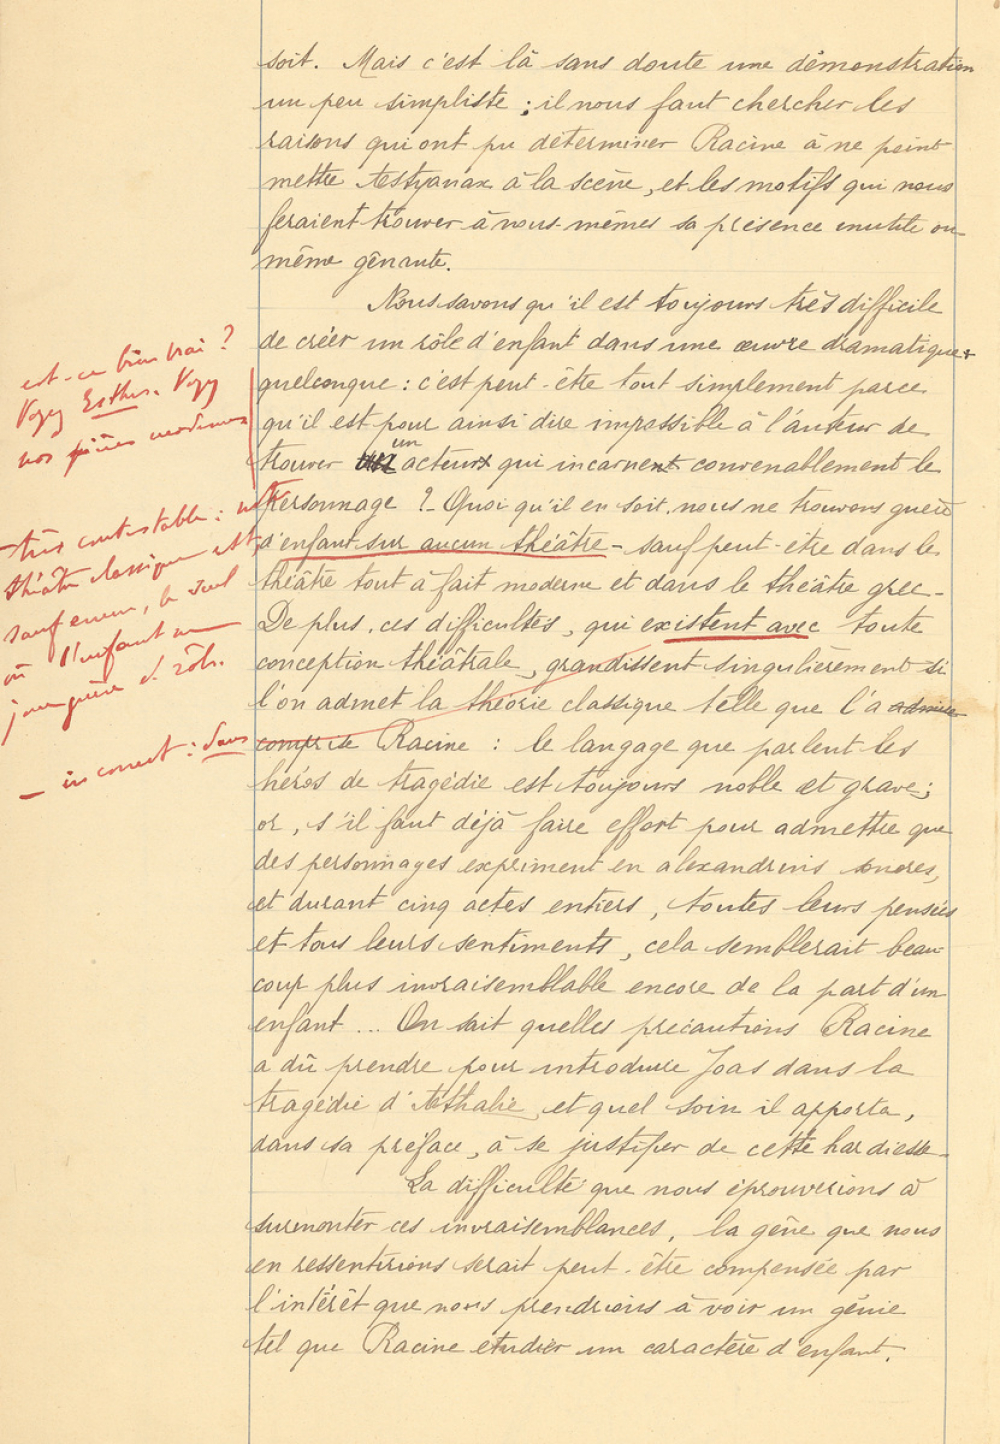 soit. Mais c'est là sans doute une démonstration
un peu simpliste ; il nous faut chercher les
raisons qui ont pu déterminer Racine à ne point
mettre Astyanax à la scène, et les motifs qui nous
feraient trouver à nous-mêmes sa présence inutile ou
même gênante.
Nous savons qu'il est toujours très difficile
de créer un rôle d'enfant dans une œuvre dramatique
quelconque : c'est peut-être tout simplement parce
qu'il est pour ainsi dire impossible à l'auteur de
trouver un acteur qui incarne convenablement le
personnage ? - Quoi qu'il en soit, nous ne trouvons guère
d'enfant sur aucun théâtre - sauf peut-être dans le
théâtre tout à fait moderne et dans le théâtre grec -
De plus, ces difficultés, qui existent avec toute
conception théâtrale, grandissent singulièrement si
l'on admet la théorie classique telle que l'a admise
comprise Racine : le langage que parlent les
héros de tragédie est toujours noble et grave ;
or, s'il faut déjà faire effort pour admettre que
des personnages expriment en alexandrins sonores,
et durant cinq actes entiers, toutes leurs pensées
et tous leurs sentiments, cela semblerait beau-
coup plus invraisemblable encore de la part d'un
enfant ... On sait quelles précautions Racine
a dû prendre pour introduire Joas dans la
tragédie d'Athalie, et quel soin il apporta,
dans sa préface, à se justifier de cette hardiesse -
La difficulté que nous éprouverions à
surmonter ces invraisemblances, la gêne que nous
en ressentirions serait peut-être compensée par
l'intérêt que nous prendrions à voir un génie
tel que Racine étudier un caractère d'enfant.
est-ce bien vrai ?
Voyez Esther. Voyez
nos pièces modernes
- très contestable : notre
théâtre classique est,
sauf erreur, le seul
où l'enfant ne
joue guère de rôle.
- incorrect : dans